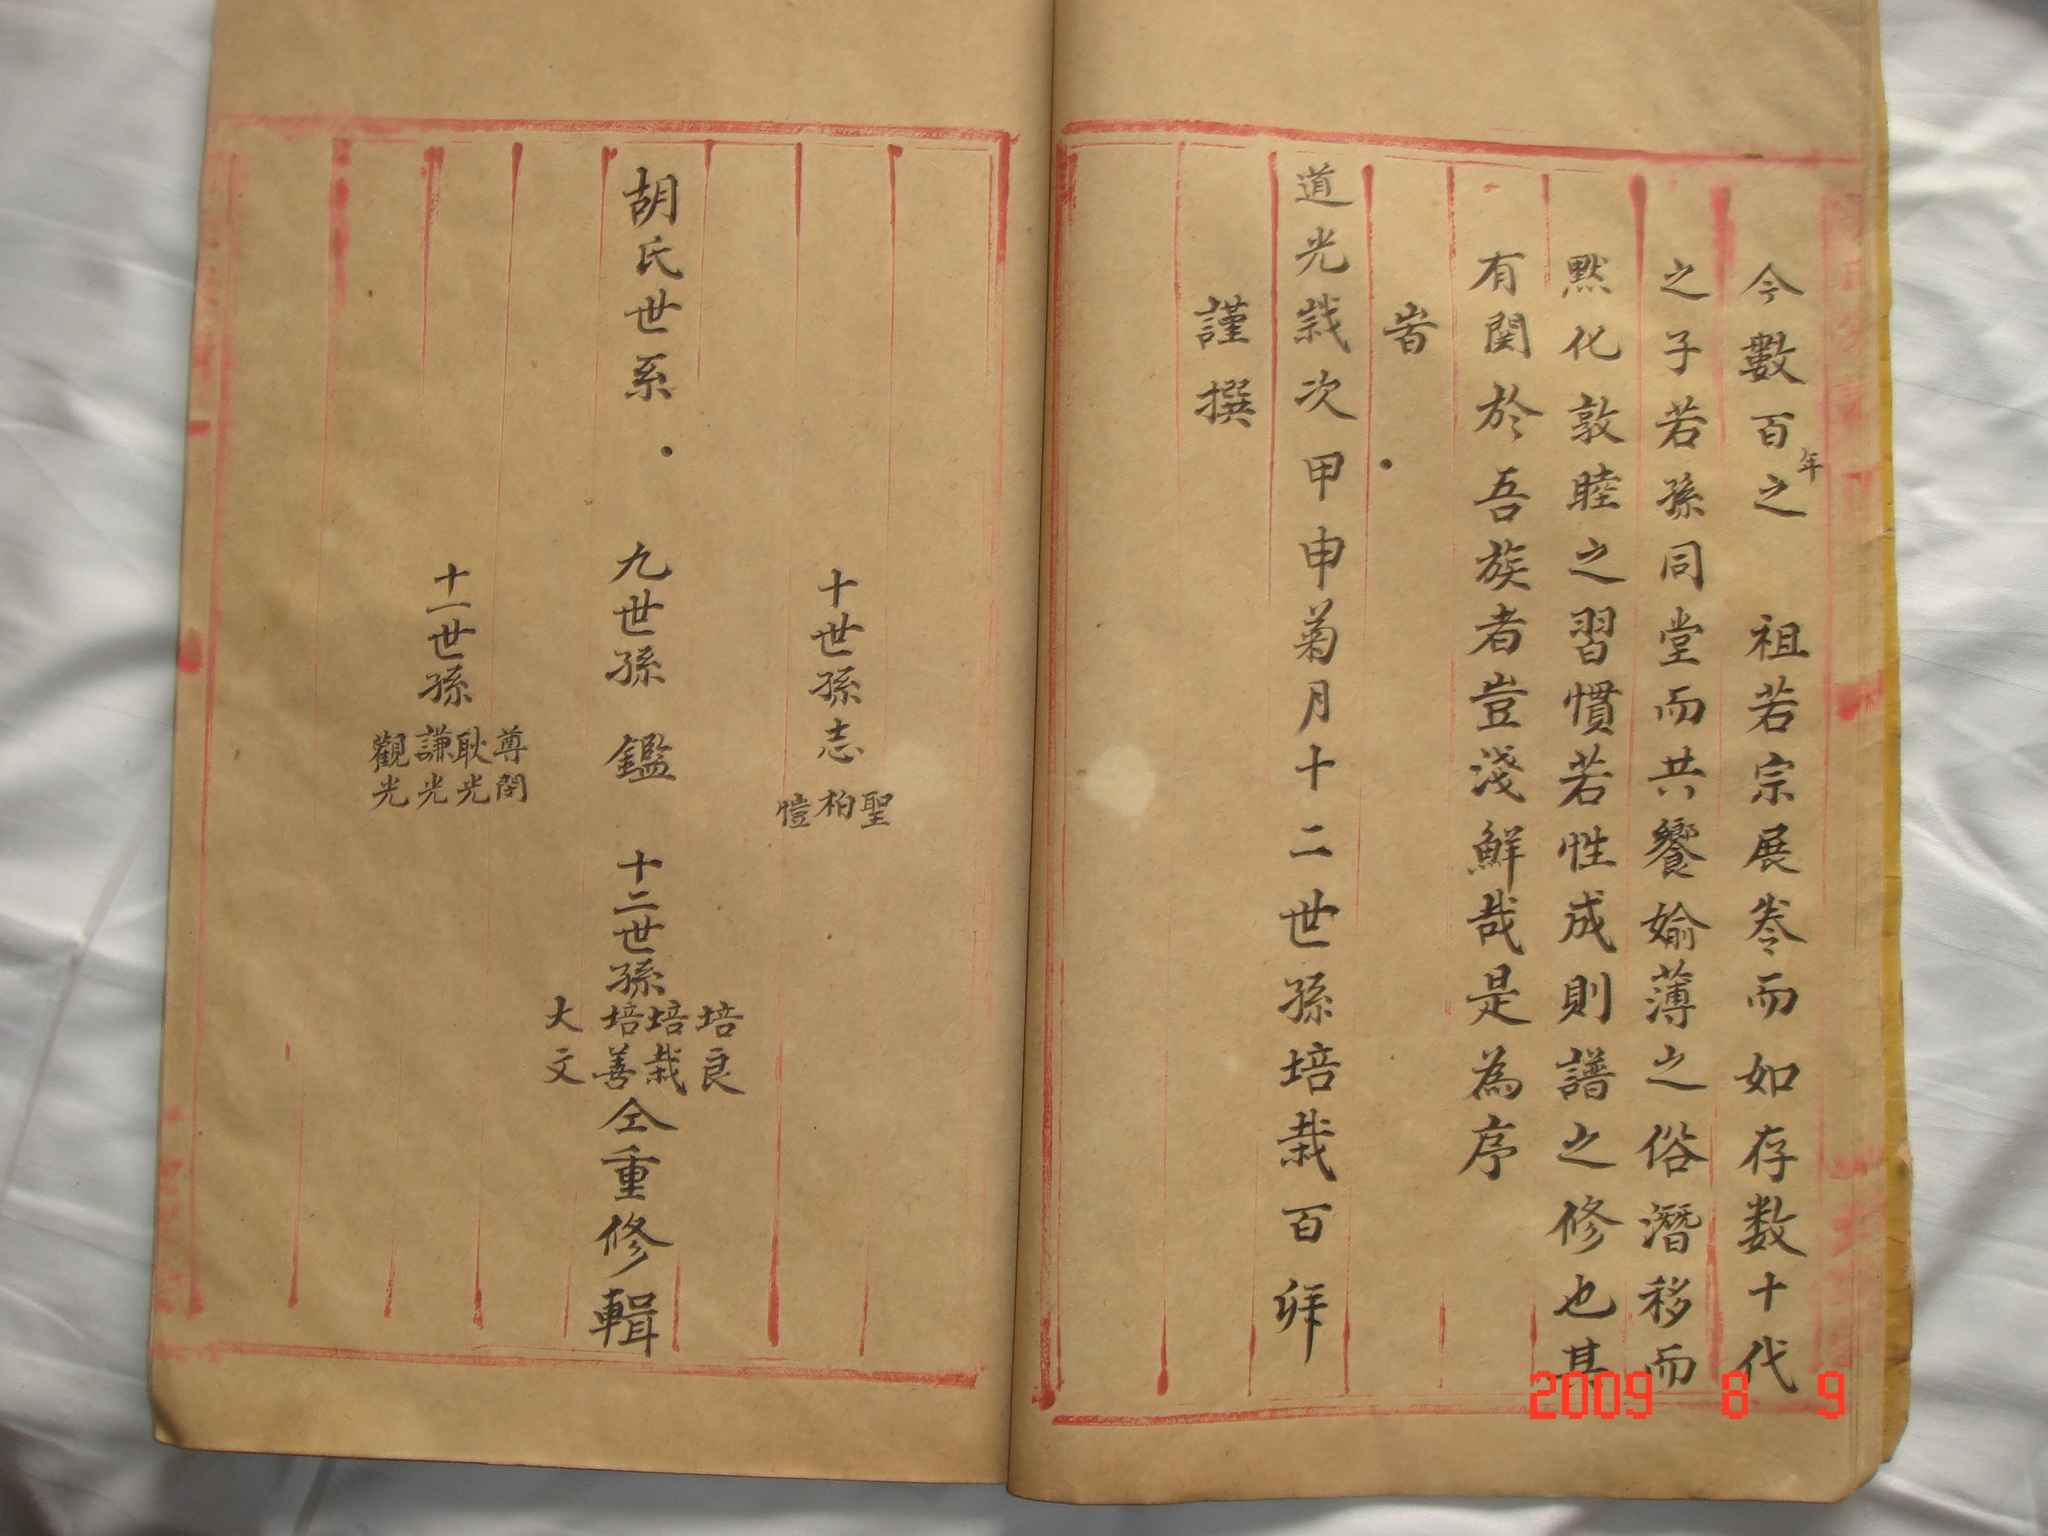 今數百年之　祖若宗展卷而如存数十代
之子若孫同堂而共饗媮薄之俗潛移而
黙化敦睦之習慣若性成則譜之修也其
有関於吾族者豈淺鮮哉是為序
旹
道光歲次甲申菊月十二世孫培栽百拜
謹撰
十世孫志聖柏愷
胡氏世系　九世孫鑑　十二世孫培良培栽培善大文仝重修輯
十一世孫尊閤耿光謙光觀光
2009 8 9